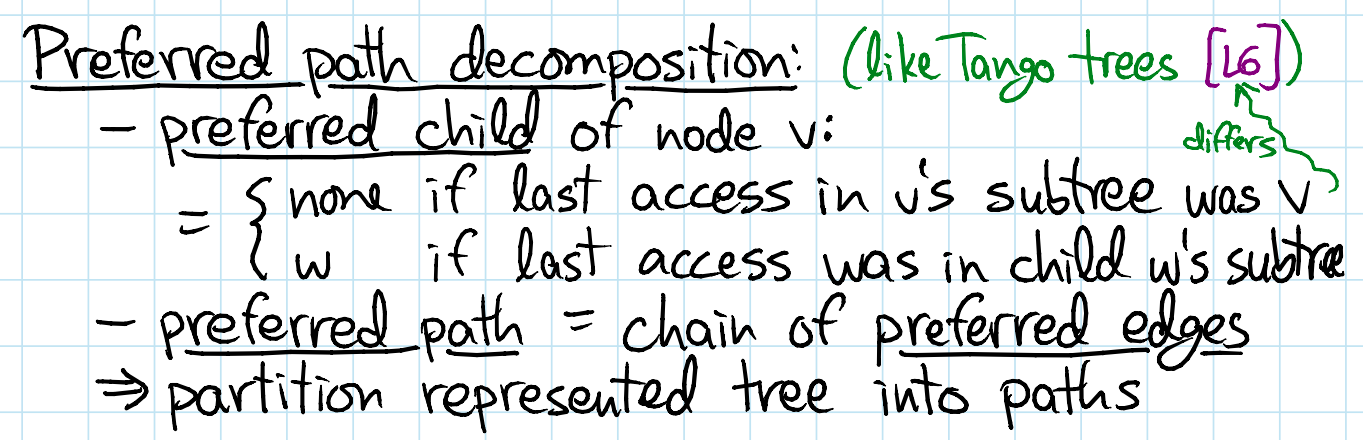 Preferred path decomposition: (like Tango trees [L6])
- preferred child of node v:
differs
= { none if last access in v's subtree was v
w if last access was in child w's subtree
- preferred path = chain of preferred edges
⇒ partition represented tree into paths